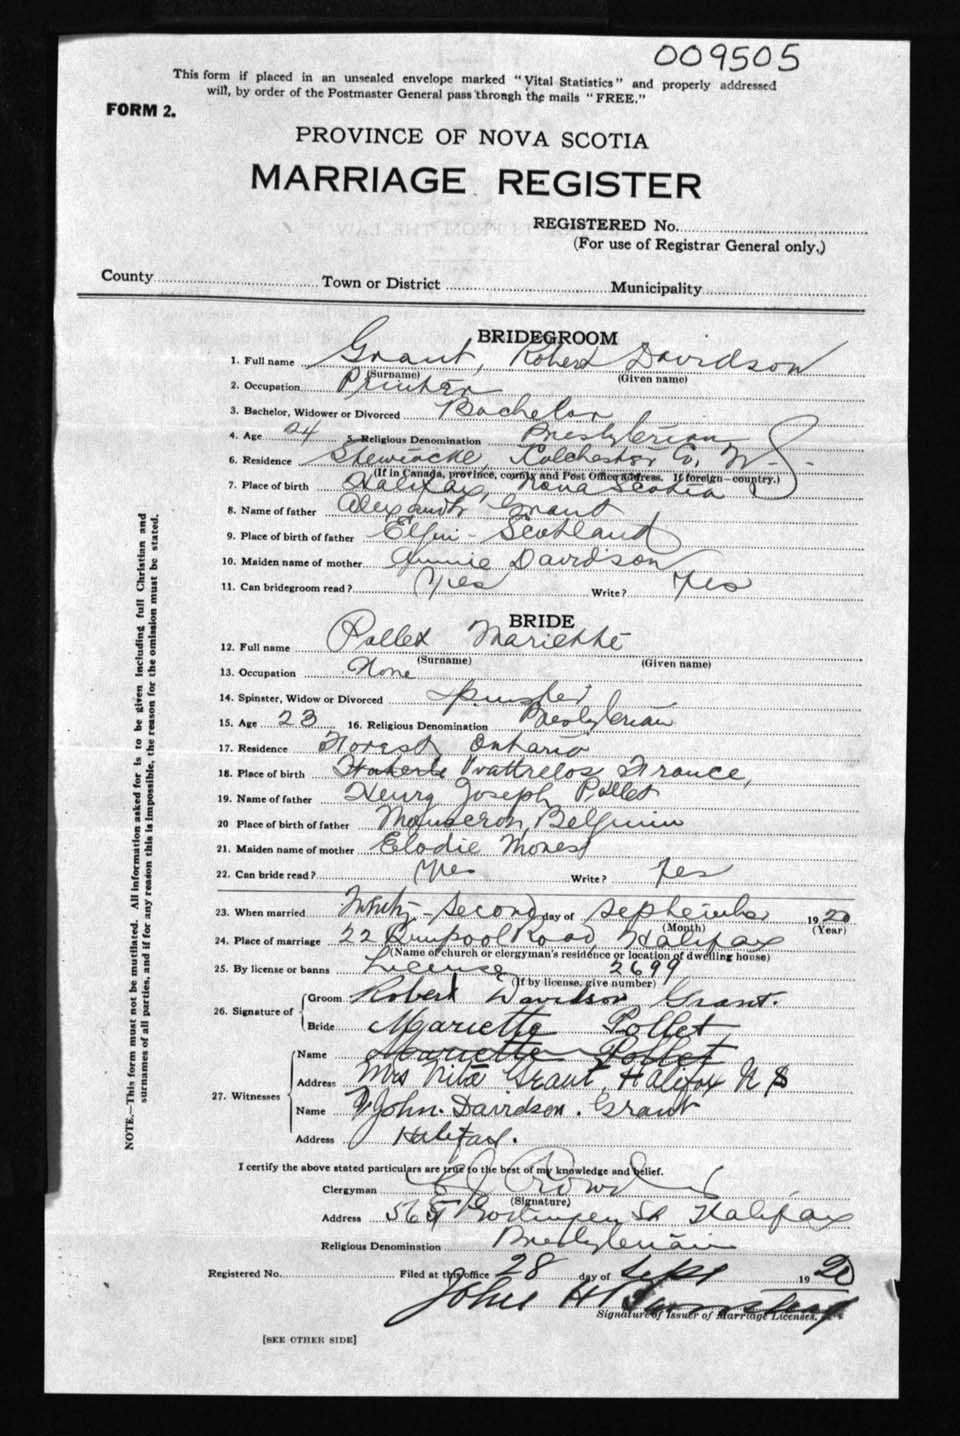 009505
This form if placed in an unsealed envelope marked "Vital Statistics" and properly addressed
will, by order of the Postmaster General pass through the mails "FREE."
FORM 2.
PROVINCE OF NOVA SCOTIA
MARRIAGE REGISTER
REGISTERED No.
(For use of Registrar General only.)
County Town or District Municipality
BRIDEGROOM
1. Full name Grant, Robert Davidson
(Surname) (Given name)
2. Occupation Printer
3. Bachelor, Widower or Divorced Bachelor
4. Age 24 5. Religious Denomination Presbyterian
6. Residence Stewiacke, Colchester Co. N.S.
(If in Canada, province, county and Post Office address. If foreign—country.)
7. Place of birth Halifax, Nova Scotia
8. Name of father Alexander Grant
9. Place of birth of father Elgin - Scotland
10. Maiden name of mother Annie Davidson
11. Can bridegroom read? Yes Write? Yes
BRIDE
12. Full name Pollet Mariette
(Surname) (Given name)
13. Occupation None
14. Spinster, Widow or Divorced Spinster
15. Age 23 16. Religious Denomination Presbyterian
17. Residence Forest, Ontario
18. Place of birth Wattrelos France,
19. Name of father Henry Joseph Pollet
20 Place of birth of father Mouscron, Belgium
21. Maiden name of mother Elodie
22. Can bride read? Yes Write? Yes
23. When married Twenty-Second day of September 1920
(Month) (Year)
24. Place of marriage 22 Road, Halifax
(Name of church or clergyman's residence or location of dwelling house)
25. By license or banns License 2699
(If by license, give number)
26. Signature of
Groom Robert Davidson Grant.
Bride Mariette Pollet
27. Witnesses
Name Mariette Pollet
Address Mrs Nita Grant, Halifax N S
Name John. Davidson. Grant
Address Halifax.
I certify the above stated particulars are true to the best of my knowledge and belief.
Clergyman
(Signature)
Address St Halifax
Religious Denomination Presbyterian
Registered No. Filed at this office 28 day of Sept 1920
John H
Signature of Issuer of Marriage Licenses.
[SEE OTHER SIDE]
NOTE.—This form must not be mutilated. All information asked for is to be given including full Christian and
surnames of all parties, and if for any reason this is impossible, the reason for the omission must be stated.